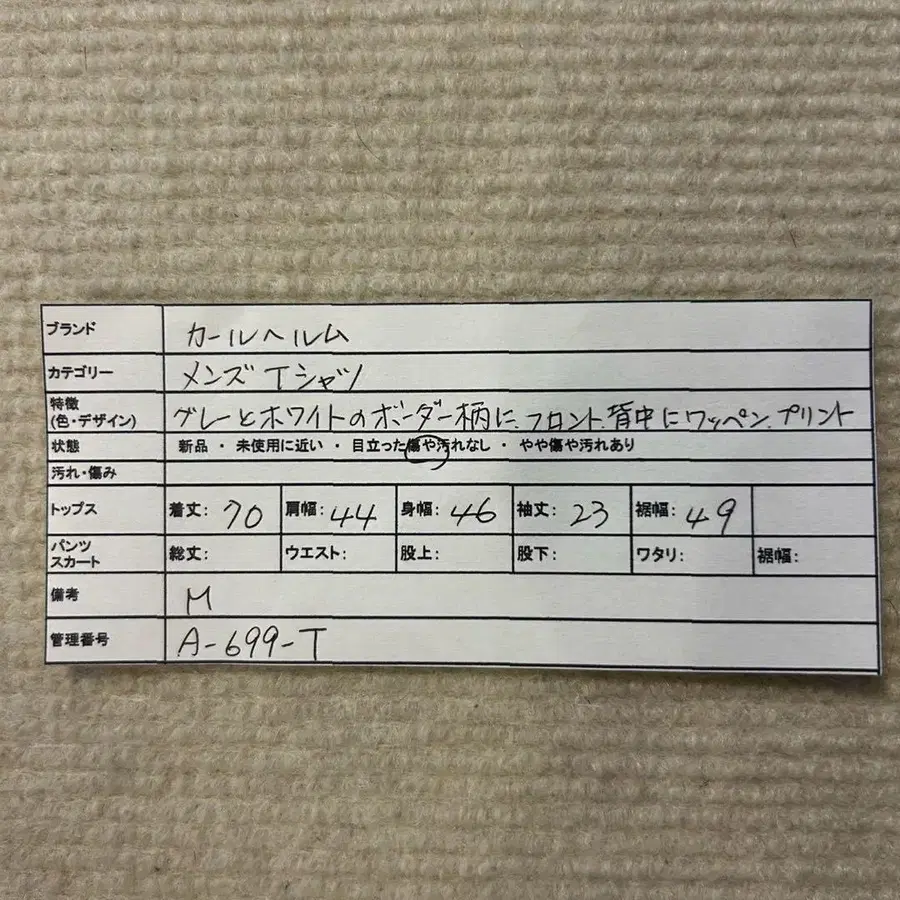 ブランド カールヘルム
カテゴリー メンズTシャツ
特徴
(色・デザイン) グレーとホワイトのボーダー柄に、フロント、背中にワッペン、プリント
状態 新品 ・ 未使用に近い ・ 目立った傷や汚れなし ・ やや傷や汚れあり
汚れ・傷み
トップス 着丈: 70 肩幅: 44 身幅: 46 袖丈: 23 裾幅: 49
パンツ
スカート 総丈: ウエスト: 股上: 股下: ワタリ: 裾幅:
備考 M
管理番号 A-699-T